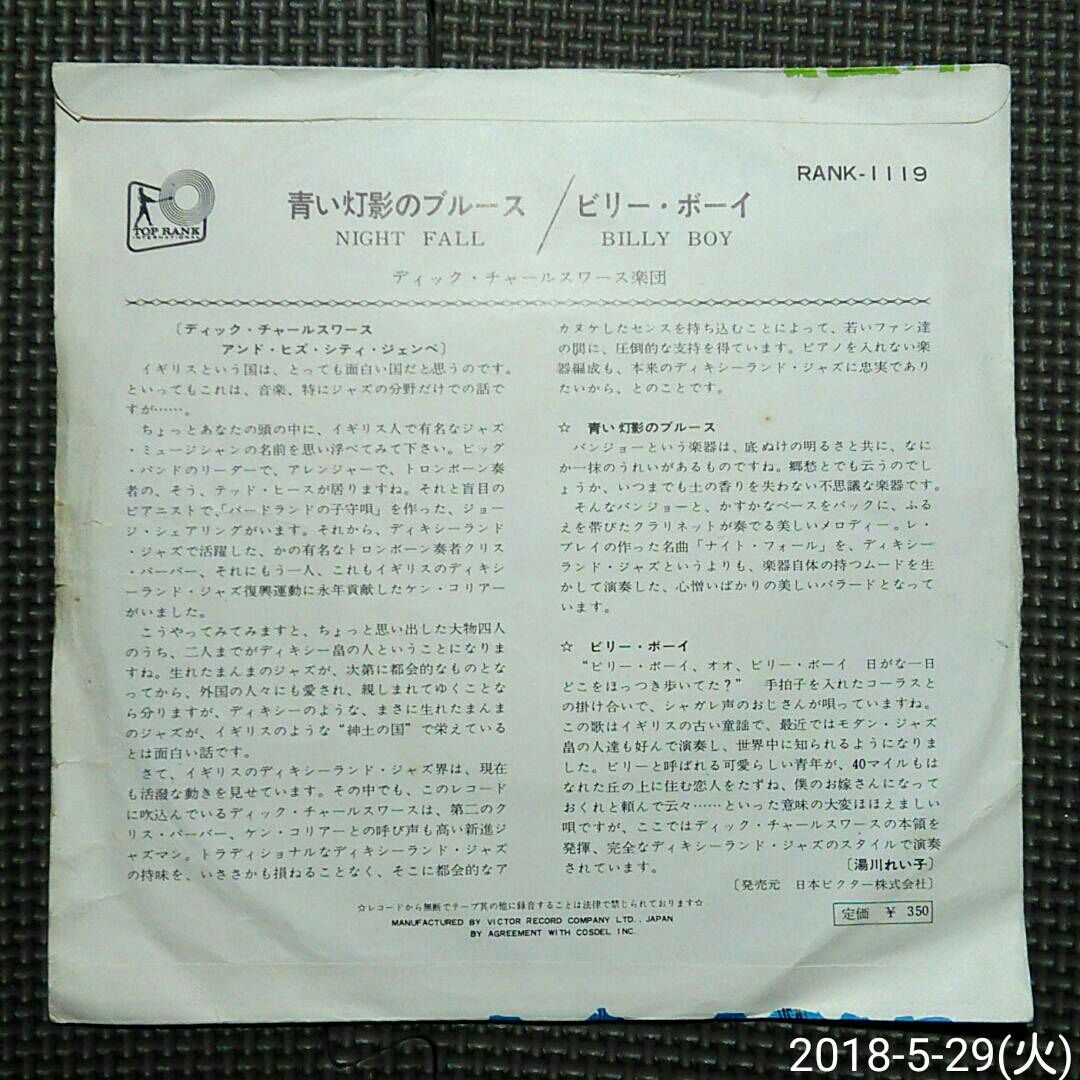 RANK-1119
TOP RANK
INTERNATIONAL
青い灯影のブルース / ビリー・ボーイ
NIGHT FALL BILLY BOY
ディック・チャールスワース楽団
〔ディック・チャールスワース
アンド・ヒズ・シティ・ジェンペ〕
イギリスという国は、とっても面白い国だと思うのです。
といってもこれは、音楽、特にジャズの分野だけでの話で
すが……。
ちょっとあなたの頭の中に、イギリス人で有名なジャズ
・ミュージシャンの名前を思い浮べてみて下さい。ビッグ
・バンドのリーダーで、アレンジャーで、トロンボーン奏
者の、そう、テッド・ヒースが居りますね。それと盲目の
ピアニストで、「バードランドの子守唄」を作った、ジョー
ジ・シェアリングがいます。それから、ディキシーランド
・ジャズで活躍した、かの有名なトロンボーン奏者クリス
・バーバー、それにもう一人、これもイギリスのディキシ
ーランド・ジャズ復興運動に永年貢献したケン・コリアー
がいました。
こうやってみてみますと、ちょっと思い出した大物四人
のうち、二人までがディキシー畠の人ということになりま
すね。生れたまんまのジャズが、次第に都会的なものとな
ってから、外国の人々にも愛され、親しまれてゆくことな
ら分りますが、ディキシーのような、まさに生れたまんま
のジャズが、イギリスのような“紳士の国”で栄えている
とは面白い話です。
さて、イギリスのディキシーランド・ジャズ界は、現在
も活潑な動きを見せています。その中でも、このレコード
に吹込んでいるディック・チャールスワースは、第二のク
リス・バーバー、ケン・コリアーとの呼び声も高い新進ジ
ャズマン。トラディショナルなディキシーランド・ジャズ
の持味を、いささかも損ねることなく、そこに都会的なア
カヌケしたセンスを持ち込むことによって、若いファン達
の間に、圧倒的な支持を得ています。ピアノを入れない楽
器編成も、本来のディキシーランド・ジャズに忠実であり
たいから、とのことです。
☆ 青い灯影のブルース
バンジョーという楽器は、底ぬけの明るさと共に、なに
か一抹のうれいがあるものですね。郷愁とでも云うのでし
ょうか、いつまでも土の香りを失わない不思議な楽器です。
そんなバンジョーと、かすかなベースをバックに、ふる
えを帯びたクラリネットが奏でる美しいメロディー。レ・
ブレイの作った名曲「ナイト・フォール」を、ディキシー
ランド・ジャズというよりも、楽器自体の持つムードを生
かして演奏した、心憎いばかりの美しいバラードとなって
います。
☆ ビリー・ボーイ
“ビリー・ボーイ、オオ、ビリー・ボーイ 日がな一日
どこをほっつき歩いてた？” 手拍子を入れたコーラスと
の掛け合いで、シャガレ声のおじさんが唄っていますね。
この歌はイギリスの古い童謡で、最近ではモダン・ジャズ
畠の人達も好んで演奏し、世界中に知られるようになりま
した。ビリーと呼ばれる可愛らしい青年が、40マイルもは
なれた丘の上に住む恋人をたずね、僕のお嫁さんになって
おくれと頼んで云々……といった意味の大変ほほえましい
唄ですが、ここではディック・チャールスワースの本領を
発揮、完全なディキシーランド・ジャズのスタイルで演奏
されています。 〔湯川れい子〕
〔発売元 日本ビクター株式会社〕
☆レコードから無断でテープ其の他に録音することは法律で禁じられております☆
MANUFACTURED BY VICTOR RECORD COMPANY LTD., JAPAN
BY AGREEMENT WITH COSDEL INC.
定価 ¥ 350
2018-5-29(火)